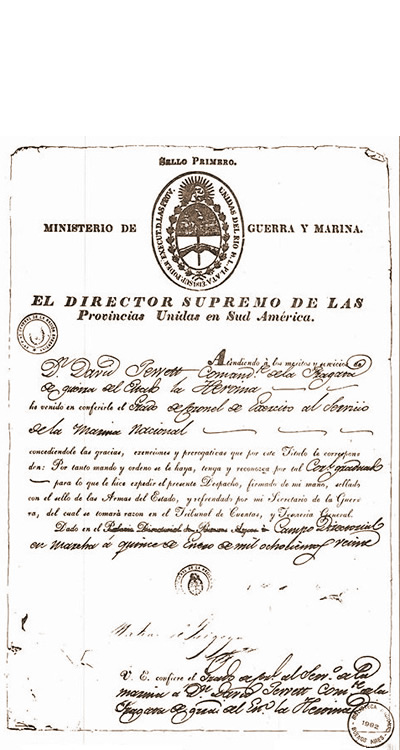 SELLO PRIMERO.
MINISTERIO DE GUERRA Y MARINA.
EL DIRECTOR SUPREMO DE LAS
Provincias Unidas en Sud América.
Atendiendo á los meritos y servicios de
Dn. David Jewett Comand.te de la Fragata
de guerra del Estado la Heroina
he venido en conferirle el Grado de Coronel de Exercito al Servicio
de la Marina Nacional
concediendole las gracias, exenciones y prerogativas que por este Titulo le correspon-
den: Por tanto mando y ordeno se le haya, tenga y reconozca por tal Cor.l graduado
para lo que le hice expedir el presente Despacho, firmado de mi mano, sellado
con el sello de las Armas del Estado, y refrendado por mi Secretario de la Guer-
ra, del cual se tomará razon en el Tribunal de Cuentas, y Tesoreria General.
Dado en el Campo Directorial
en marcha á quince de Enero de mil ochocientos veinte
V. E. confiere el Grado de al Serv.o de la
marina á Dn. David Jewett Com.te de la
Fragata de grra. del Es.do la Heroina
1902
BUENOS AIRES